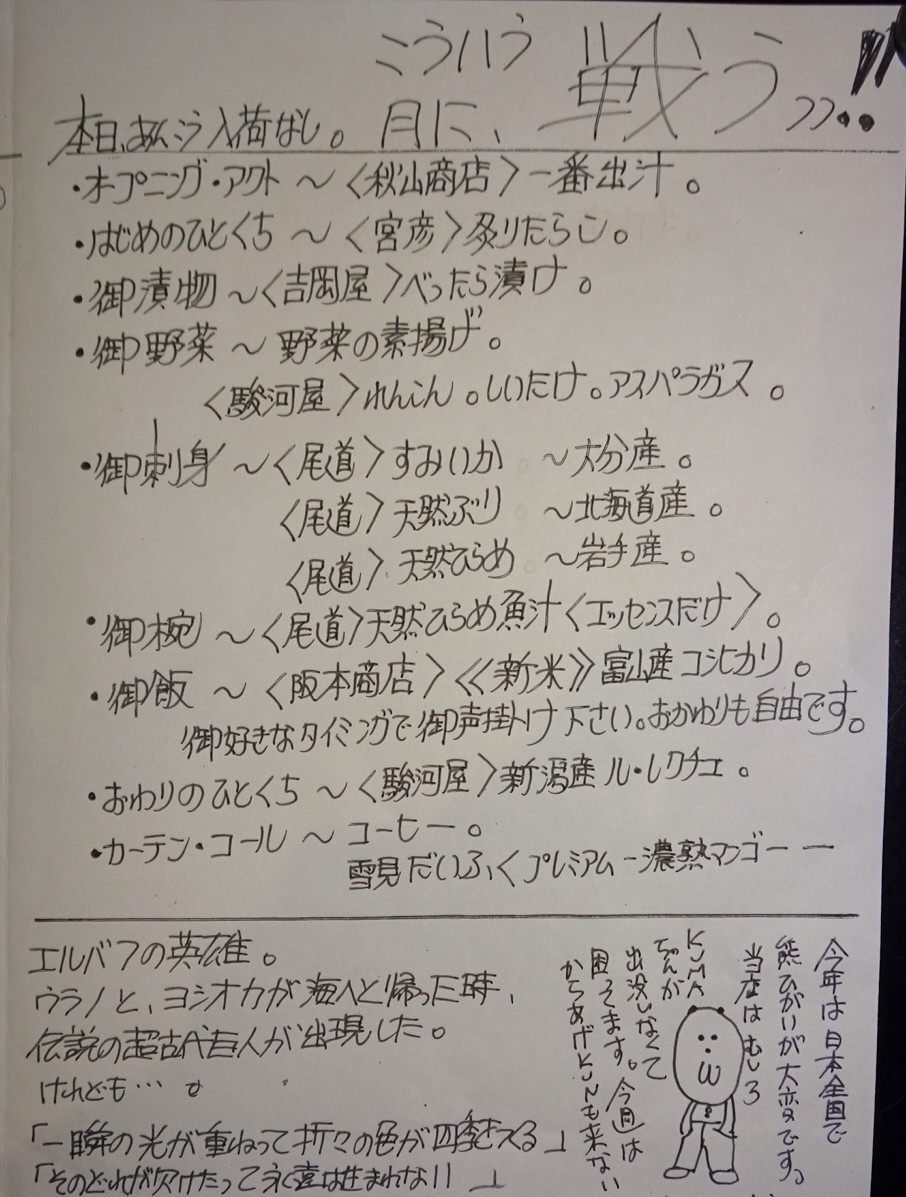 ミラハラ
本日、あんこう入荷なし。 月に、戦う ﾌﾌ..!!
・オープニング・アクト 〜〈秋山商店〉一番出汁。
・はじめのひとくち 〜〈宮彦〉炙りたらこ。
・御漬物 〜〈吉岡屋〉べったら漬け。
・御野菜 〜 野菜の素揚げ。
〈駿河屋〉れんこん。しいたけ。アスパラガス。
・御刺身 〜〈尾道〉すみいか 〜大分産。
〈尾道〉天然ぶり 〜北海道産。
〈尾道〉天然ひらめ 〜岩手産。
・御椀 〜〈尾道〉天然ひらめ魚汁〈エッセンスだけ〉。
・御飯 〜〈阪本商店〉《新米》富山産コシヒカリ。
御好きなタイミングで御声掛け下さい。おかわりも自由です。
・おわりのひとくち 〜〈駿河屋〉新潟産ル・レクチェ。
・カーテン・コール 〜 コーヒー。
雪見だいふくプレミアム―濃熟マンゴー―
エルバフの英雄。
ウラノと、ヨシオカが海へと帰った時、
伝説の超古代巨人が出現した。
けれども…。
「一瞬の光が重ねって折々の色が四季を
「そのどれが欠けたって永遠は生まれない」
今年は日本全国で
熊ひがいが大変です。
当店はむしろ
KUMA
ちゃんが
出没しなくて
困ってます。今週は
からあげKUNも来ない